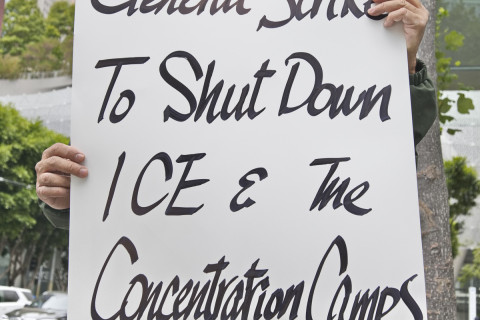 General Strike
To Shut Down
ICE & The
Concentration Camps